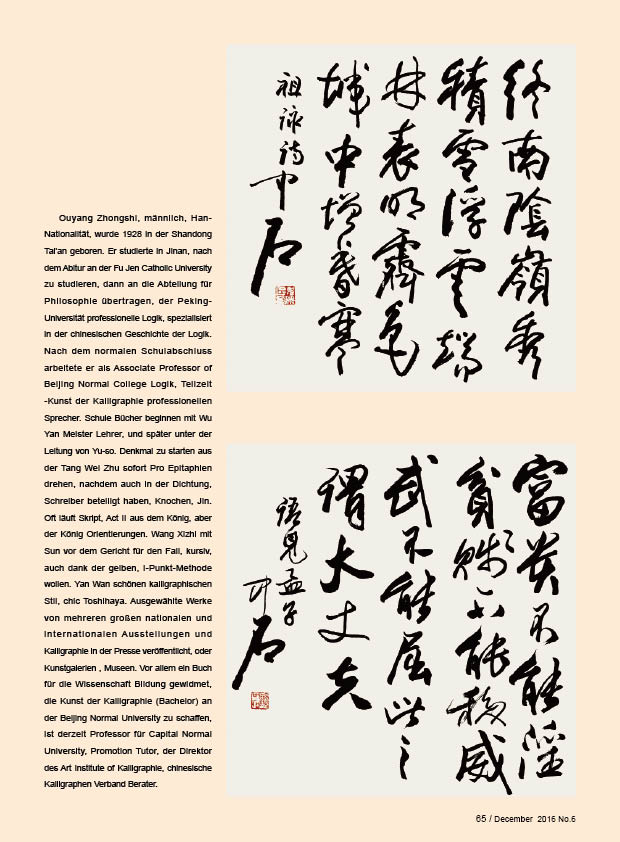 Ouyang Zhongshi, männlich, Han-
Nationalität, wurde 1928 in der Shandong
Tai'an geboren. Er studierte in Jinan, nach
dem Abitur an der Fu Jen Catholic University
zu studieren, dann an die Abteilung für
Philosophie übertragen, der Peking-
Universität professionelle Logik, spezialisiert
in der chinesischen Geschichte der Logik.
Nach dem normalen Schulabschluss
arbeitete er als Associate Professor of
Beijing Normal College Logik, Teilzeit
-Kunst der Kalligraphie professionellen
Sprecher. Schule Bücher beginnen mit Wu
Yan Meister Lehrer, und später unter der
Leitung von Yu-so. Denkmal zu starten aus
der Tang Wei Zhu sofort Pro Epitaphien
drehen, nachdem auch in der Dichtung,
Schreiber beteiligt haben, Knochen, Jin.
Oft läuft Skript, Act II aus dem König, aber
der König Orientierungen. Wang Xizhi mit
Sun vor dem Gericht für den Fall, kursiv,
auch dank der gelben, I-Punkt-Methode
wollen. Yan Wan schönen kalligraphischen
Stil, chic Toshihaya. Ausgewählte Werke
von mehreren großen nationalen und
internationalen Ausstellungen und
Kalligraphie in der Presse veröffentlicht, oder
Kunstgalerien , Museen. Vor allem ein Buch
für die Wissenschaft Bildung gewidmet,
die Kunst der Kalligraphie (Bachelor) an
der Beijing Normal University zu schaffen,
ist derzeit Professor für Capital Normal
University, Promotion Tutor, der Direktor
des Art Institute of Kalligraphie, chinesische
Kalligraphen Verband Berater.
終南陰嶺秀
積雪浮雲端
林表明霽色
城中增暮寒
祖詠詩中石
富貴不能淫
貧賤不能移威
武不能屈此之
謂大丈夫
語見孟子
中石
65 / December 2016 No.6